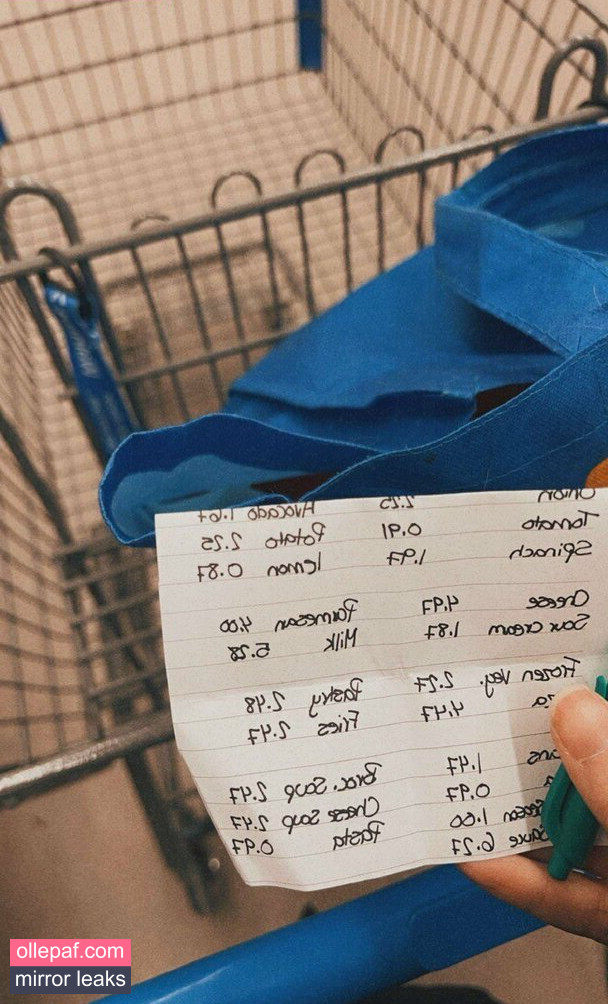 Onion 2.25 Avocado 1.67
Tomato 0.91 Potato 2.25
Spinach 1.97 lemon 0.87
Cheese 4.97 Parmesan 4.00
Sour cream 1.87 Milk 5.28
Frozen Veg. 2.27 Pastry 2.48
4.47 Fries 2.47
1.47 Broc. Soup 2.47
0.97 Cheese Soup 2.47
1.60 Pasta 0.97
Sauce 6.27
ollepaf.com
mirror leaks